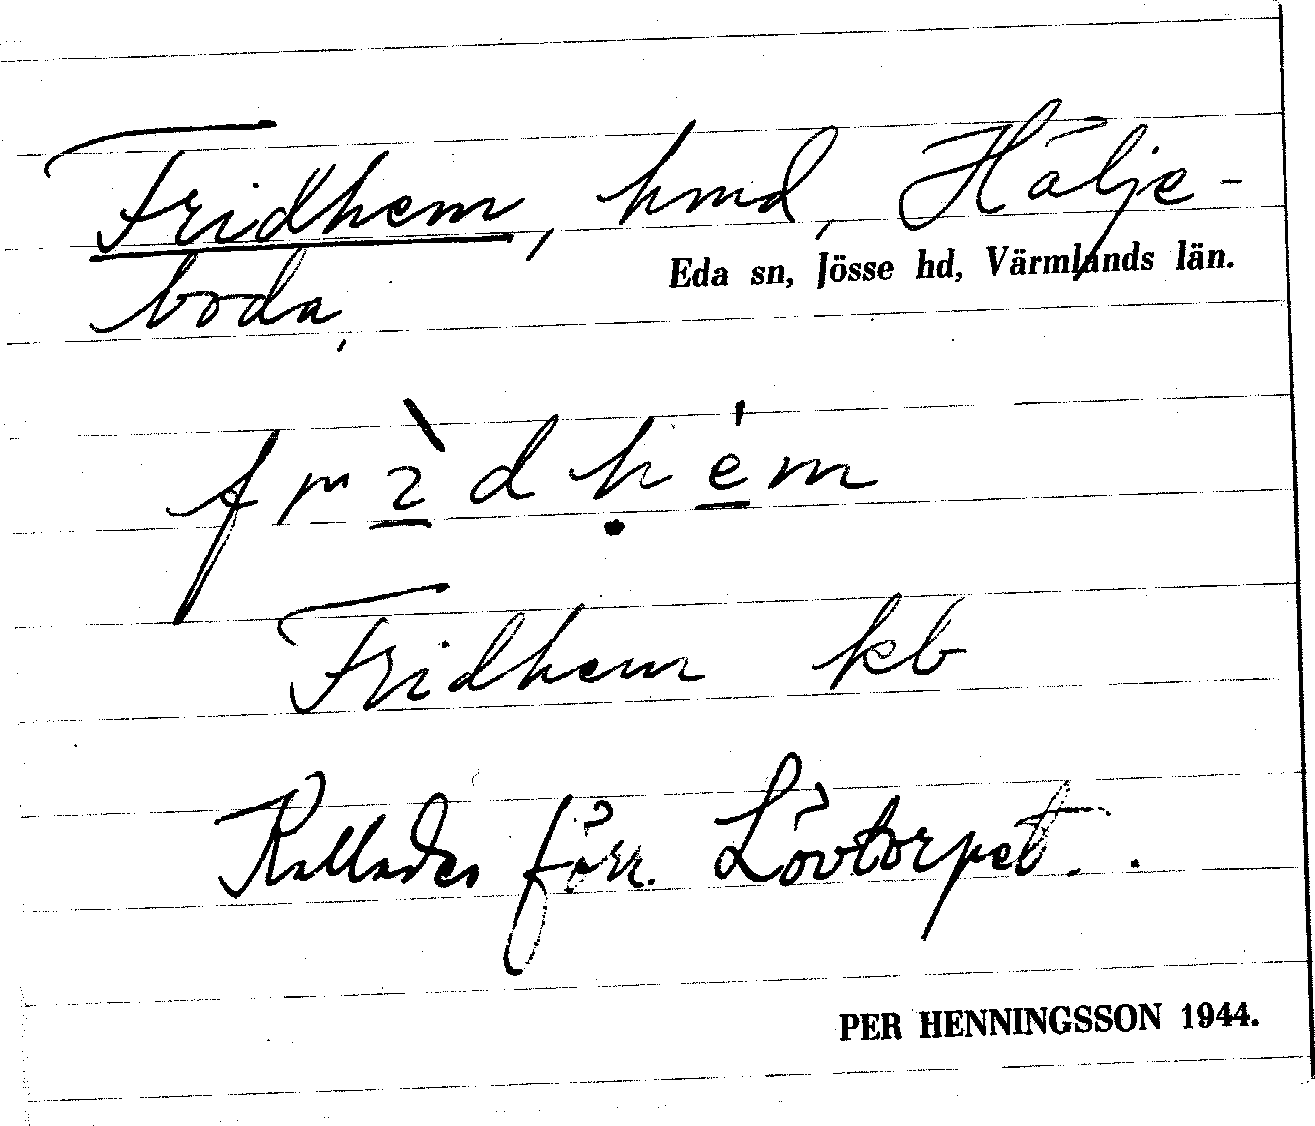 Fridhem, hmd, Hälje-
Eda sn, Jösse hd, Värmlands län.
boda,
frìdḥém
Fridhem kb
Kallades förr. Lövtorpet.
PER HENNINGSSON 1944.